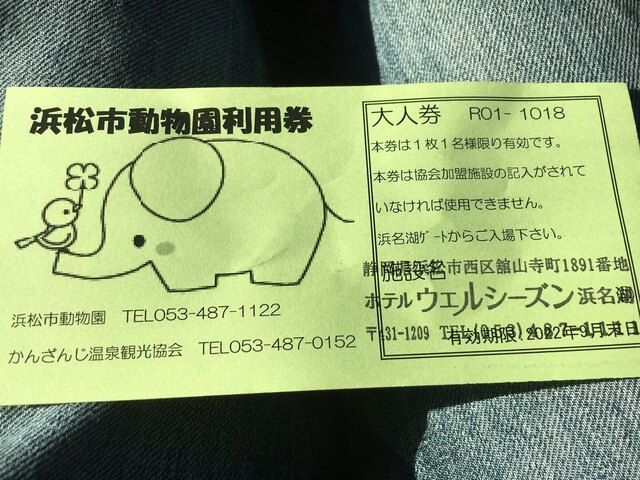 浜松市動物園利用券
大人券 R01- 1018
本券は1枚1名様限り有効です。
本券は協会加盟施設の記入がされて
いなければ使用できません。
浜名湖ｹﾞｰﾄからご入場下さい。
施設名
静岡県浜松市西区舘山寺町1891番地
ホテルウェルシーズン浜名湖
〒431-1209 TEL(053)487-1111
有効期限:2022年9月末日
浜松市動物園 TEL053-487-1122
かんざんじ温泉観光協会 TEL053-487-0152